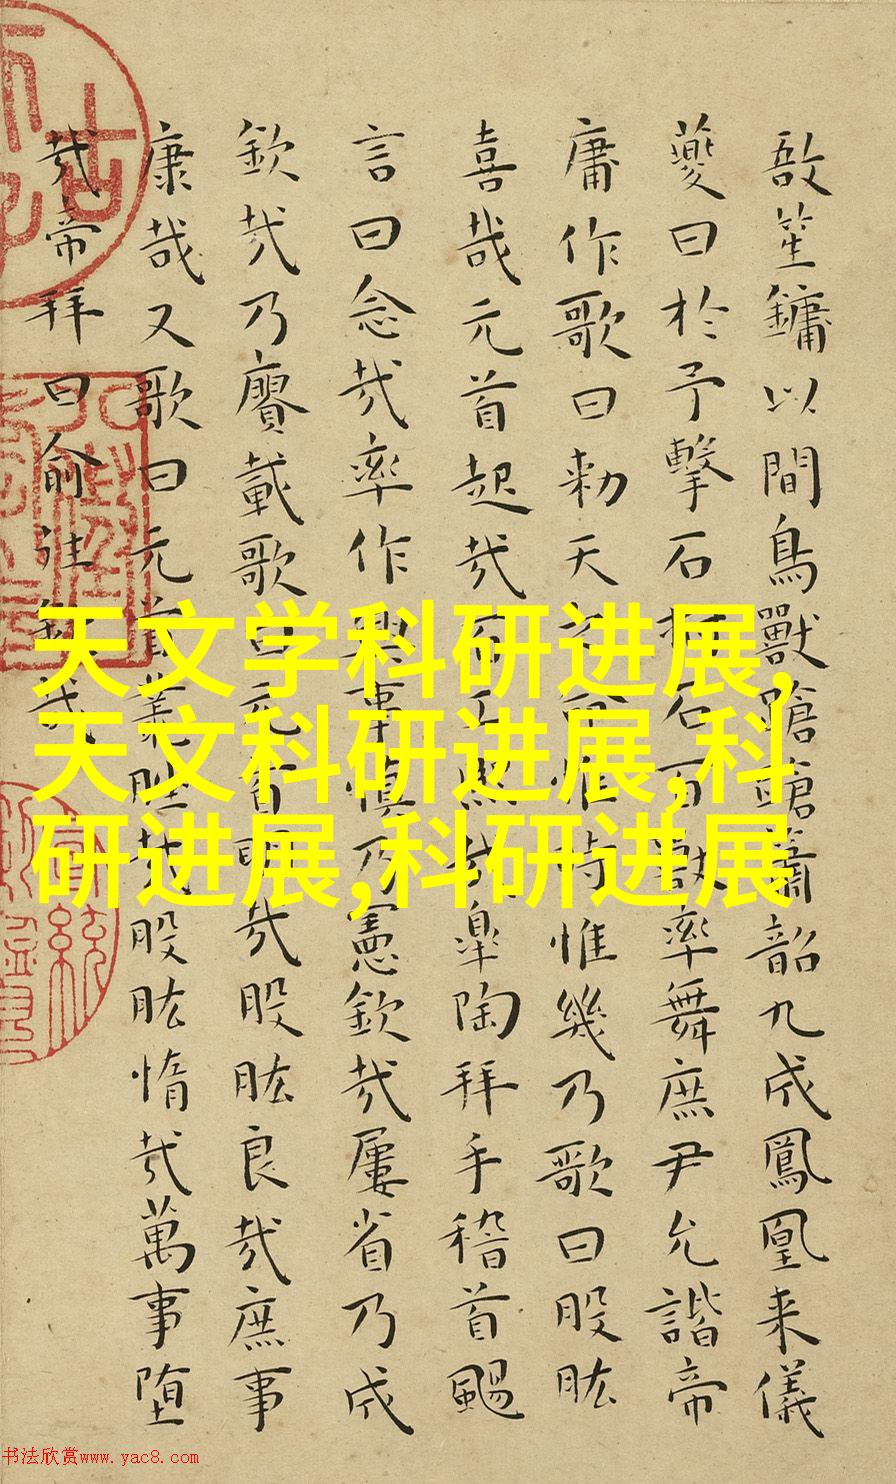 敔笙鏞以間鳥獸蹌蹌簫韶九成鳳凰来儀
夔曰於予擊石拊石百獸率舞庶尹允諧帝
庸作歌曰勅天之命惟時惟幾乃歌曰股肱
喜哉元首起哉百工熙哉臯陶拜手稽首颺
言曰念哉率作興事慎乃憲欽哉屢省乃成
欽哉乃賡載歌曰元首明哉股肱良哉庶事
康哉又歌曰元首叢脞哉股肱惰哉萬事堕
哉帝拜曰俞往欽哉
天文学科研进展,
天文科研进展,科
研进展,科研进展
书法欣赏www.yac8.com